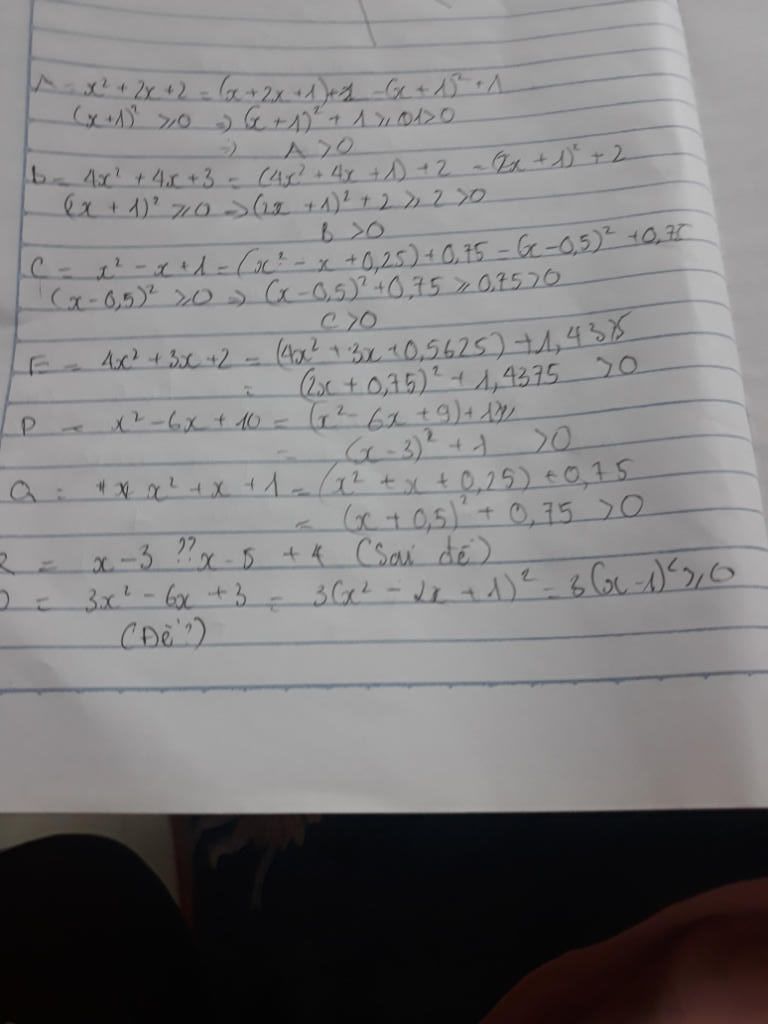 A = x² + 2x + 2 = (x + 2x + 1) + 1 = (x + 1)² + 1
(x + 1)² ≥ 0 ⇒ (x + 1)² + 1 ≥ 1 > 0
⇒ A > 0
b = 4x² + 4x + 3 = (4x² + 4x + 1) + 2 = (2x + 1)² + 2
(2x + 1)² ≥ 0 ⇒ (2x + 1)² + 2 ≥ 2 > 0
B > 0
C = x² - x + 1 = (x² - x + 0,25) + 0,75 = (x - 0,5)² + 0,75
(x - 0,5)² ≥ 0 ⇒ (x - 0,5)² + 0,75 ≥ 0,75 > 0
C > 0
F = 4x² + 3x + 2 = (4x² + 3x + 0,5625) + 1,4375
= (2x + 0,75)² + 1,4375 > 0
P = x² - 6x + 10 = (x² - 6x + 9) + 1
= (x - 3)² + 1 > 0
Q = x² + x + 1 = (x² + x + 0,25) + 0,75
= (x + 0,5)² + 0,75 > 0
R = x - 3 ?? x - 5 + 4 (Sai đề)
= 3x² - 6x + 3 = 3(x² - 2x + 1)² = 3(x - 1)² ≥ 0
(Đề ?)